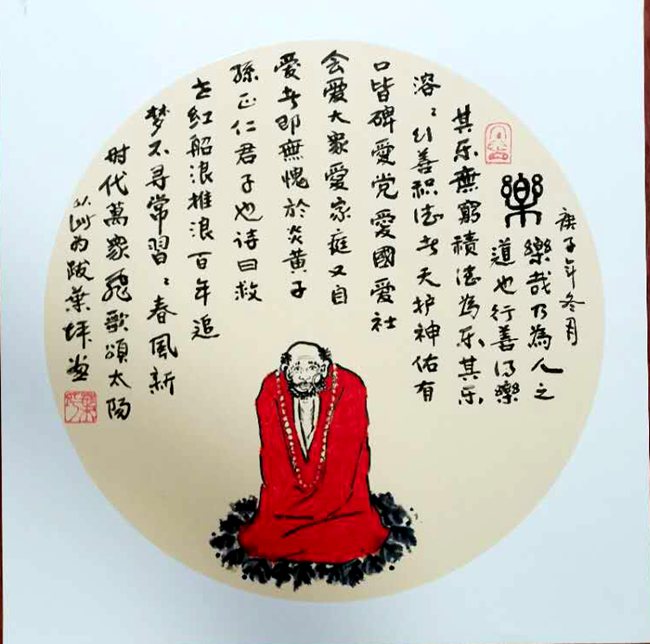 庚子年冬月
樂
樂哉乃為人之
道也行善得樂
其乐無窮積德為乐其乐
溶々行善积德者天护神佑有
口皆碑愛党愛國愛社
会愛大眾愛家庭又自
愛者即無愧於炎黄子
孫正仁君子也诗曰救
世红船浪推浪百年追
梦不尋常習々春風新
时代萬眾飛歌頌太陽
以此为跋葉坪画